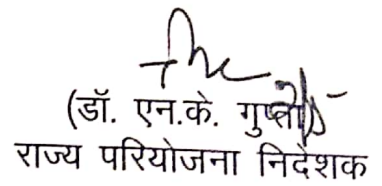 (डॉ. एन.के. गुप्ता)
राज्य परियोजना निदेशक